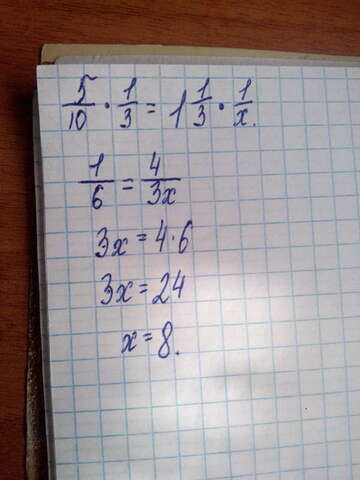 5/10 · 1/3 = 1 1/3 · 1/x.
1/6 = 4/3x
3x = 4·6
3x = 24
x = 8.